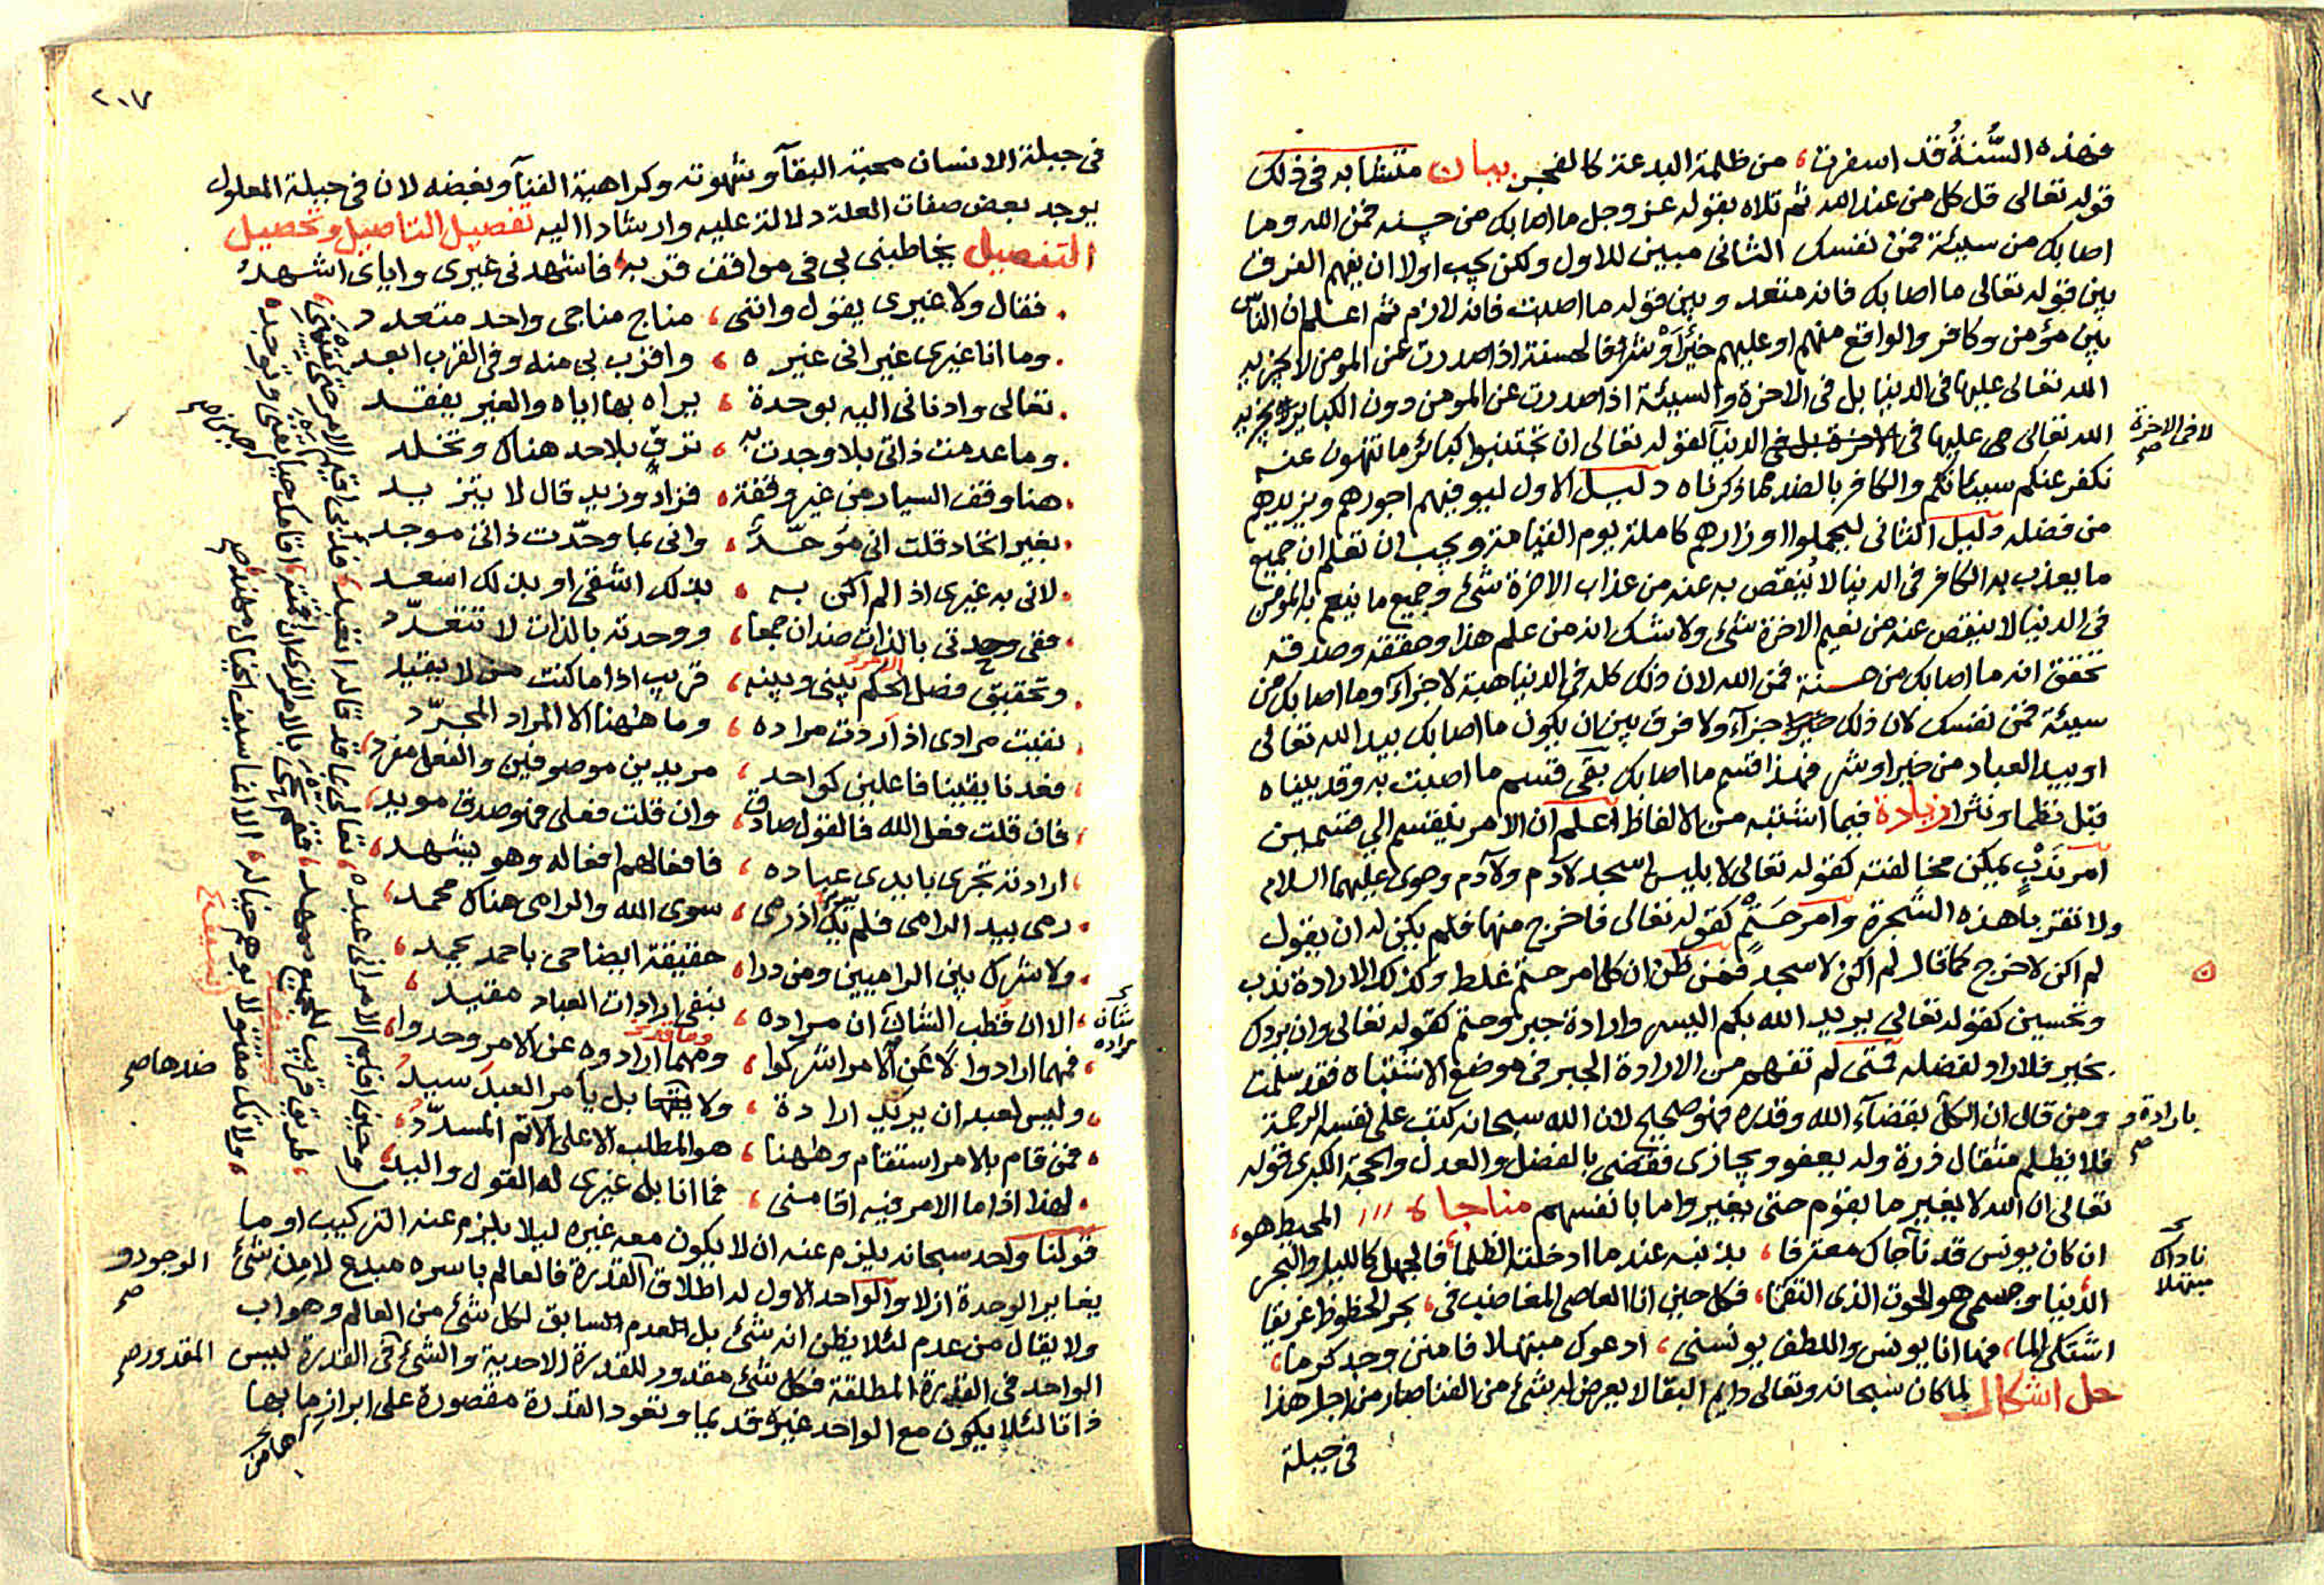 فهذه السُّنةُ قد اسفرت، من ظلمة البدعة كالفجر. بيان متشابه في ذلك
قوله تعالى قل كل من عند الله ثم تلاه بقوله عز وجل ما اصابك من حسنه فمن الله وما
اصابك من سيئة فمن نفسك الثاني مبين للاول ولكن يجب اولا ان يفهم الفرق
بين قوله تعالى ما اصابك فانه متعد وبين قوله ما اصبت فانه لازم ثم اعلم ان الناس
بين مؤمن وكافر والواقع منهم او عليهم خيرًا وْ شر فالحسنة اذا صدرت عن المومن لا يجزيه
الله تعالى عليها في الدنيا بل في الاخرة والسيئة اذا صدرت عن المومن دون الكباير يجزيه
الله تعالى عليها في الاخرة بل في الدنيا لقوله تعالى ان تجتنبوا كبائر ما تنهون عنه
لا في الاخرة صح
نكفر عنكم سيئاتكم والكافر بالضد مما ذكرناه دليل الاول ليوفيهم اجورهم ويزيدهم
من فضله دليل الثاني ليحملوا اوزارهم كاملة يوم القيامة ويجب ان تعلم ان جميع
ما يعذب به الكافر في الدنيا لا ينقص به عنه من عذاب الاخرة شئ وجميع ما ينعم به المومن
في الدنيا لا ينقص عنه من نعيم الاخرة شئ ولا شك ان من علم هذا وحققه وصدقه
تحقق انه ما اصابك من حسنة فمن الله لان ذلك كله في الدنيا هبة لا جزآء وما اصابك من
سيئة فمن نفسك لان ذلك جزآء ولا فرق بين ان يكون ما اصابك بيد الله تعالى
او بيد العباد من خير او شر فهذا قسم ما اصابك بقى قسم ما اصبت به وقد بيناه
قبل نظما ونثرا زيادة فيما اشتبه من الالفاظ اعلم ان الامر ينقسم الي قسمين
امر ندبٍ يمكن مخالفته كقوله تعالى لابليس اسجد لآدم ولآدم وحوى عليهما السلام
ولا تقربا هذه الشجرة وامر حَتمٍ كقوله تعالى فاخرج منها فلم يكن له ان يقول
لم اكن لاخرج كما قال لم اكن لاسجد فمن ظن ان كل امر حتم غلط وكذلك الارادة ندب
وتحسين كقوله تعالى يريد الله بكم اليسر وارادة جبر وحتم كقوله تعالى وان يردك
بخير فلا راد لفضله فمتى لم تفهم من الارادة الجبر في موضع الاشتباه فقد سلمت
ومن قال ان الكل بقضآء الله وقدره فهو صحيح لان الله سبحانه كتب على نفسه الرحمة
بارادة و صح
فلا يظلم مثقال ذرة وله يعفو ويجازى فقضى بالفضل والعدل والحجة الكبرى قوله
تعالى ان الله لا يغير ما بقوم حتى يغيروا ما بانفسهم مناجاة المحيط هو،
ان كان يونس قد ناجاك معترفا، بذنبه عند ما ادخلته الظلما، فالجهل كالليل والبحر
ناداك مبتهلا
الدنيا وجسمى هو الحوت الذى التقما، فكل حين انا العاصى المغاضب في، بحر الحظوظ غريقا
اشتكى الما، فها انا يونس واللطف يونسنى، ادعوك مبتهلا فامنن وجد كرما،
حل اشكال لما كان سبحانه وتعالى دايم البقا لا يعرض له شئ من الفنا صار من اجل هذا
في جبلة
٢٠٧
في جبلة الانسان محبة البقآء وشهوته وكراهية الفنآء وبغضه لان في جبلة المعلول
يوجد بعض صفات العلة دلالة عليه وارشادا اليه تفصيل التاصيل وتحصيل
التفصيل يخاطبنى بى في مواقف قربه، فاشهدنى غيرى واياى اشهد
فقال ولا غيرى يقول واننى، مناج مناجى واحد متعدد
وما انا غيرى غير انى غيره، واقرب بى منه وفي القرب ابعد
تعالى وادنانى اليه بوحدة، يراه بها اياه والغير يفقد
وما عدمت ذاتى بلا وجدت به، ترقٍ بلا حد هناك وتخلد
هنا وقف السيار من غير وقفة، فزاد وزيد قال لا يتزيد
بغير اتحاد قلت انى موَحّدٌ، وانى بما وحّدت ذاتى موجد
لانى به غيرى اذا لم اكن به، بذلك اشقى او بذلك اسعد
ففى وحدتى بالذات ضدان جمعا، ووحدته بالذات لا تتعدّد
وتحقيق فصل الحكم بينى وبينه، قريب اذا ما كنت من لا يقيد
نفيت مرادى اذ اردت مراده، وما ههنا الا المراد المجرّد
فعدنا يقينا فاعلين كواحد، مريدين موصوفين والفعل مفرد،
فان قلت فعل الله فالقول صادق، وان قلت فعلى فهو صدق مويد،
ارادته تجرى بايدى عباده، فافعالهم افعاله وهو يشهد،
رمى بيد الرامى فلم يك اذ رمى، سوى الله والرامى هناك محمد،
ولا شرك بين الراميين ومن درا، حقيقة ايضاحى باحمد يحمد،
الا ان قطب الشان ان مراده، بنفى ارادات العباد مقيد،
شانه مراده
فمهما ارادوا لا عن الامر اشركوا، ومهما ارادوه عن الامر وحدوا،
وليس لعبد ان يريد ارادة، ولا يقها بل يأمر العبد سيد
ضدها صح
فمن قام بالامر استقام وههنا، هو المطلب الاعلى الاتم المسدّد،
لهذا اذا ما الامر فيه اقامنى، فما انا بل غيرى له القول واليد،
قولنا واحد سبحانه يلزم عنه ان لا يكون معه غيره ليلا يلزم عنه التركيب او ما
يغاير الوحدة ازلا والواحد الاول له اطلاق القدرة فالعالم باسره مبدع لا من شئ
الوجود و صح
ولا يقال من عدم لئلا يظن انه شئ بل العدم السابق لكل شئ من العالم وهو اب
الواحد في القدرة المطلقة فكل شئ مقدور للقدرة الاحدية والشئ في القدرة ليس
المقدور صح
ذاتا لئلا يكون مع الواحد غيره قديما وتعود القدرة مقصورة على ابراز ما بها